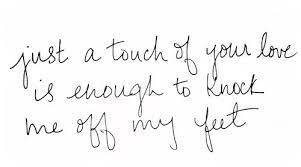 just a touch of your love
is enough to knock
me off my feet